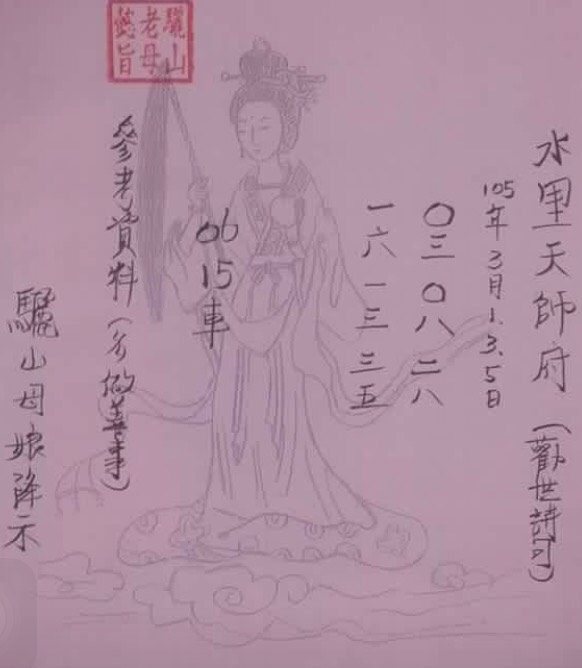 水里天師府(勸世詩句)
105年3月1.3.5日
〇三 〇八 二八
一六 一三 三五
06 15 車
驪山老母懿旨
參考資料(多做善事)
驪山母娘降示